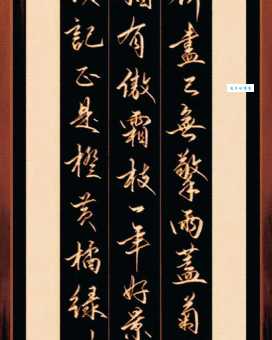 盡已無擎雨蓋菊
有傲霜枝一年好景
記正是橙黃橘綠